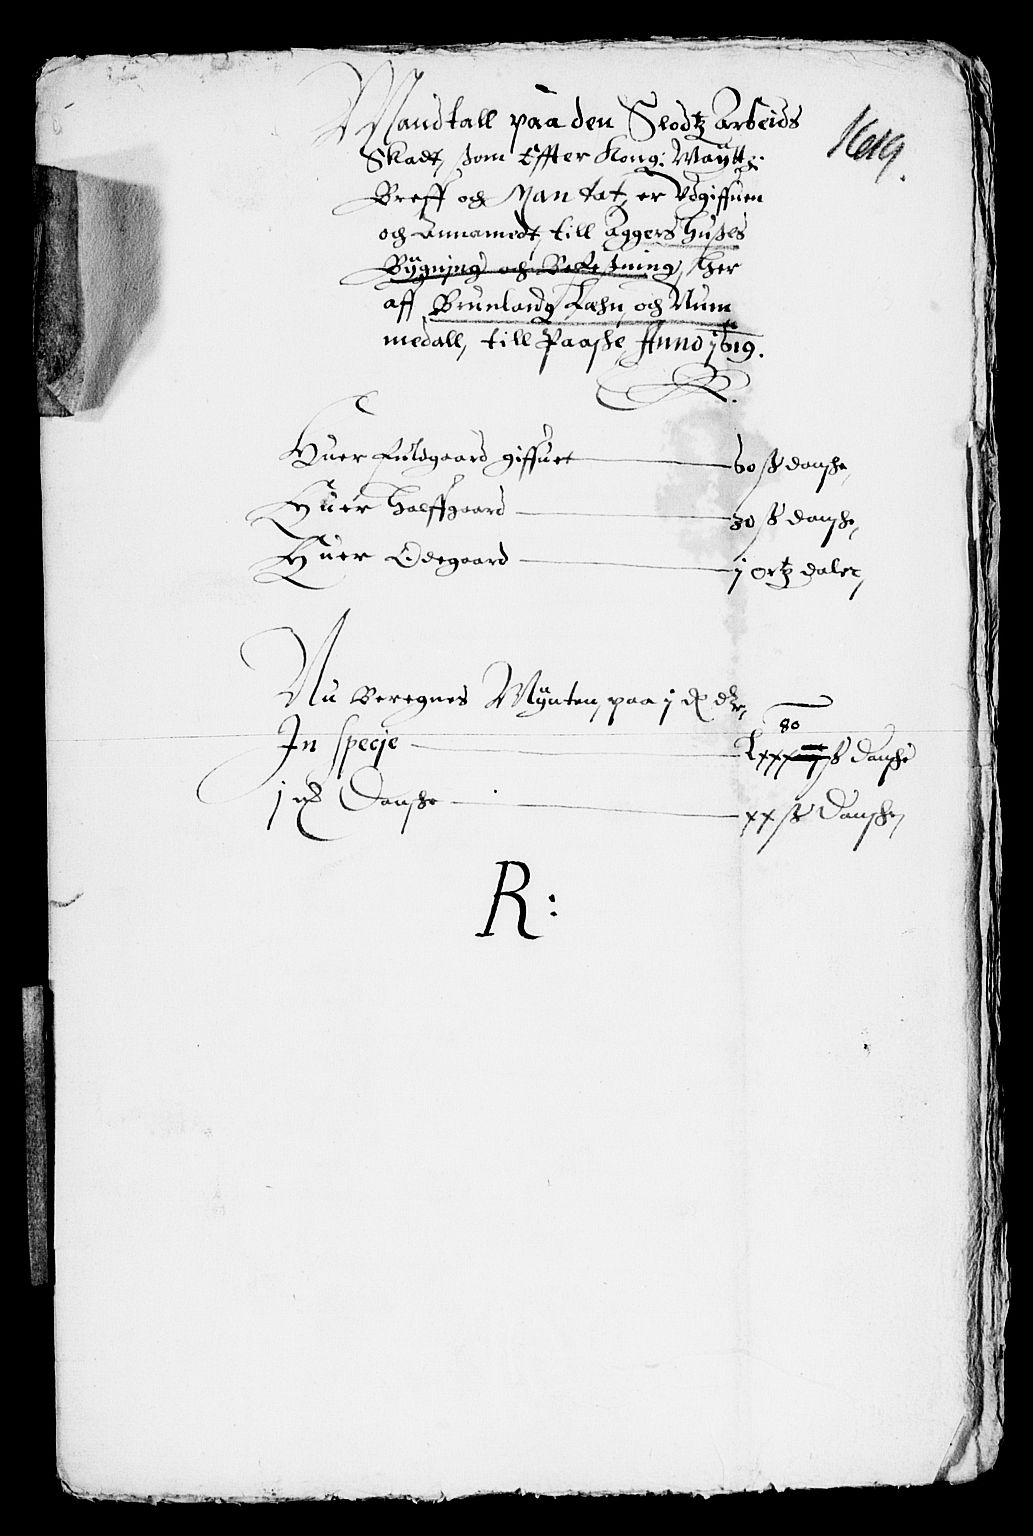 Mandtall paa den Slodtz Arbeids
1619.
Skadt, som Effter Kong: Maÿtt:
Breff och Mandat, er Vdgiffuen
och Annamedt, till Aggers Hußes
Bÿgning och Befestning, her
aff Brunlaugs Læhn, och Num
medall, till Paaske Anno 1619.
Huer Fuldgaard giffuet 60 ß danske,
Huer Halffgaard 30 ß danske,
Huer Ødegaard j ortz daler,
Nu Beregnes Mÿnten, paa j
80
In specje Lxxx ß Danske
j Danske xx ß Danske,
R: